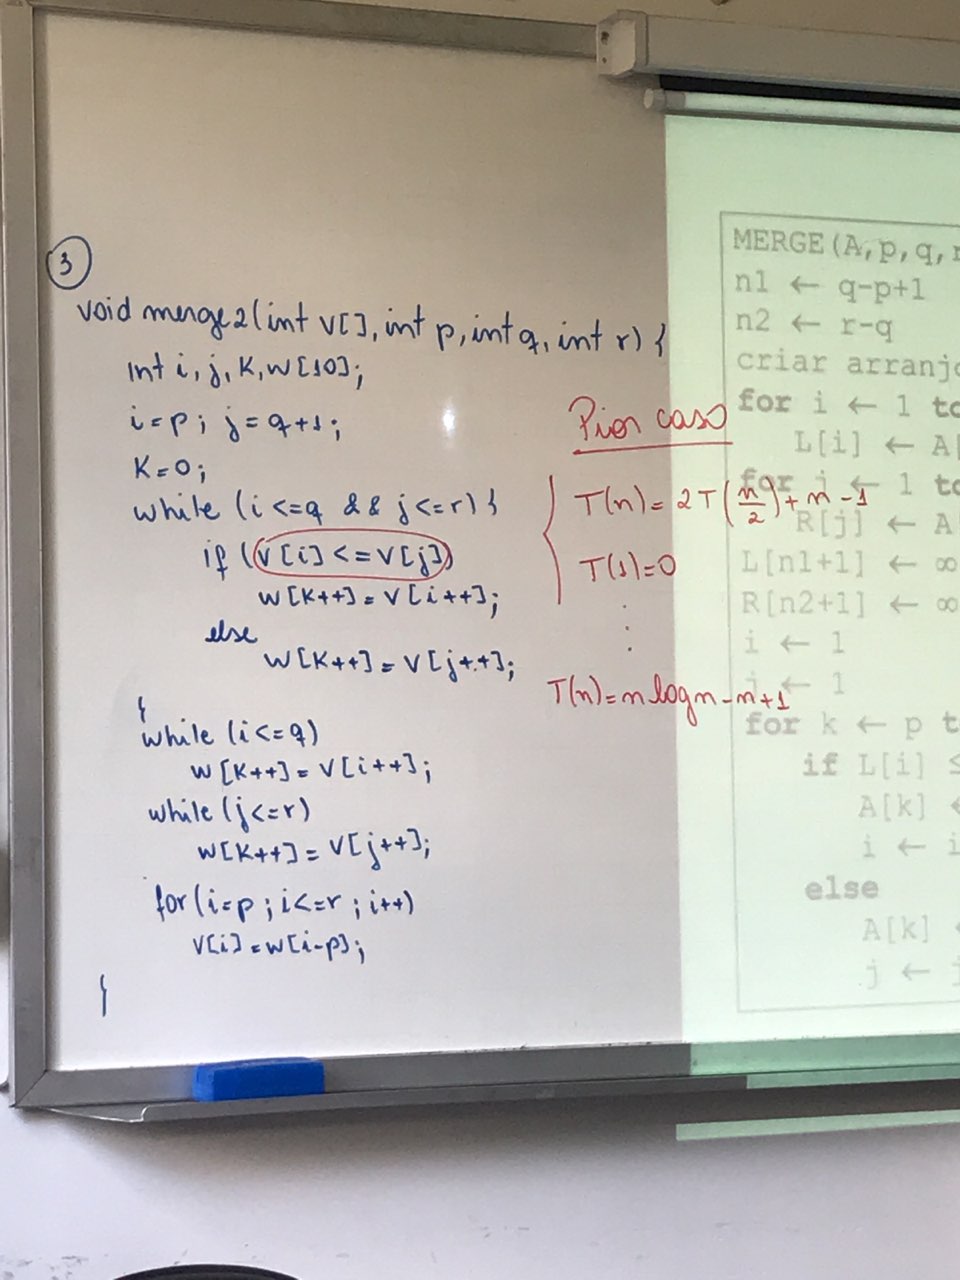 3
void merge2(int v[], int p, int q, int r) {
int i, j, k, w[10];
i=p; j=q+1;
k=0;
while (i<=q && j<=r) {
if (v[i] <= v[j])
w[k++] = v[i++];
else
w[k++] = v[j++];
}
while (i<=q)
w[k++] = v[i++];
while (j<=r)
w[k++] = v[j++];
for (i=p; i<=r; i++)
v[i] = w[i-p];
}
Pior caso
T(n) = 2T(n/2) + n - 1
T(1) = 0
⋮
T(n) = n log n - n + 1
MERGE(A,p,q,
n1 ← q-p+1
n2 ← r-q
criar
for i ← 1
L[i] ←
for j ← 1
R[j] ←
L[n1+1] ← ∞
R[n2+1] ← ∞
i ← 1
j ← 1
for k ← p
if L[i] ≤
A[k]
i ←
else
A[k]
j ←